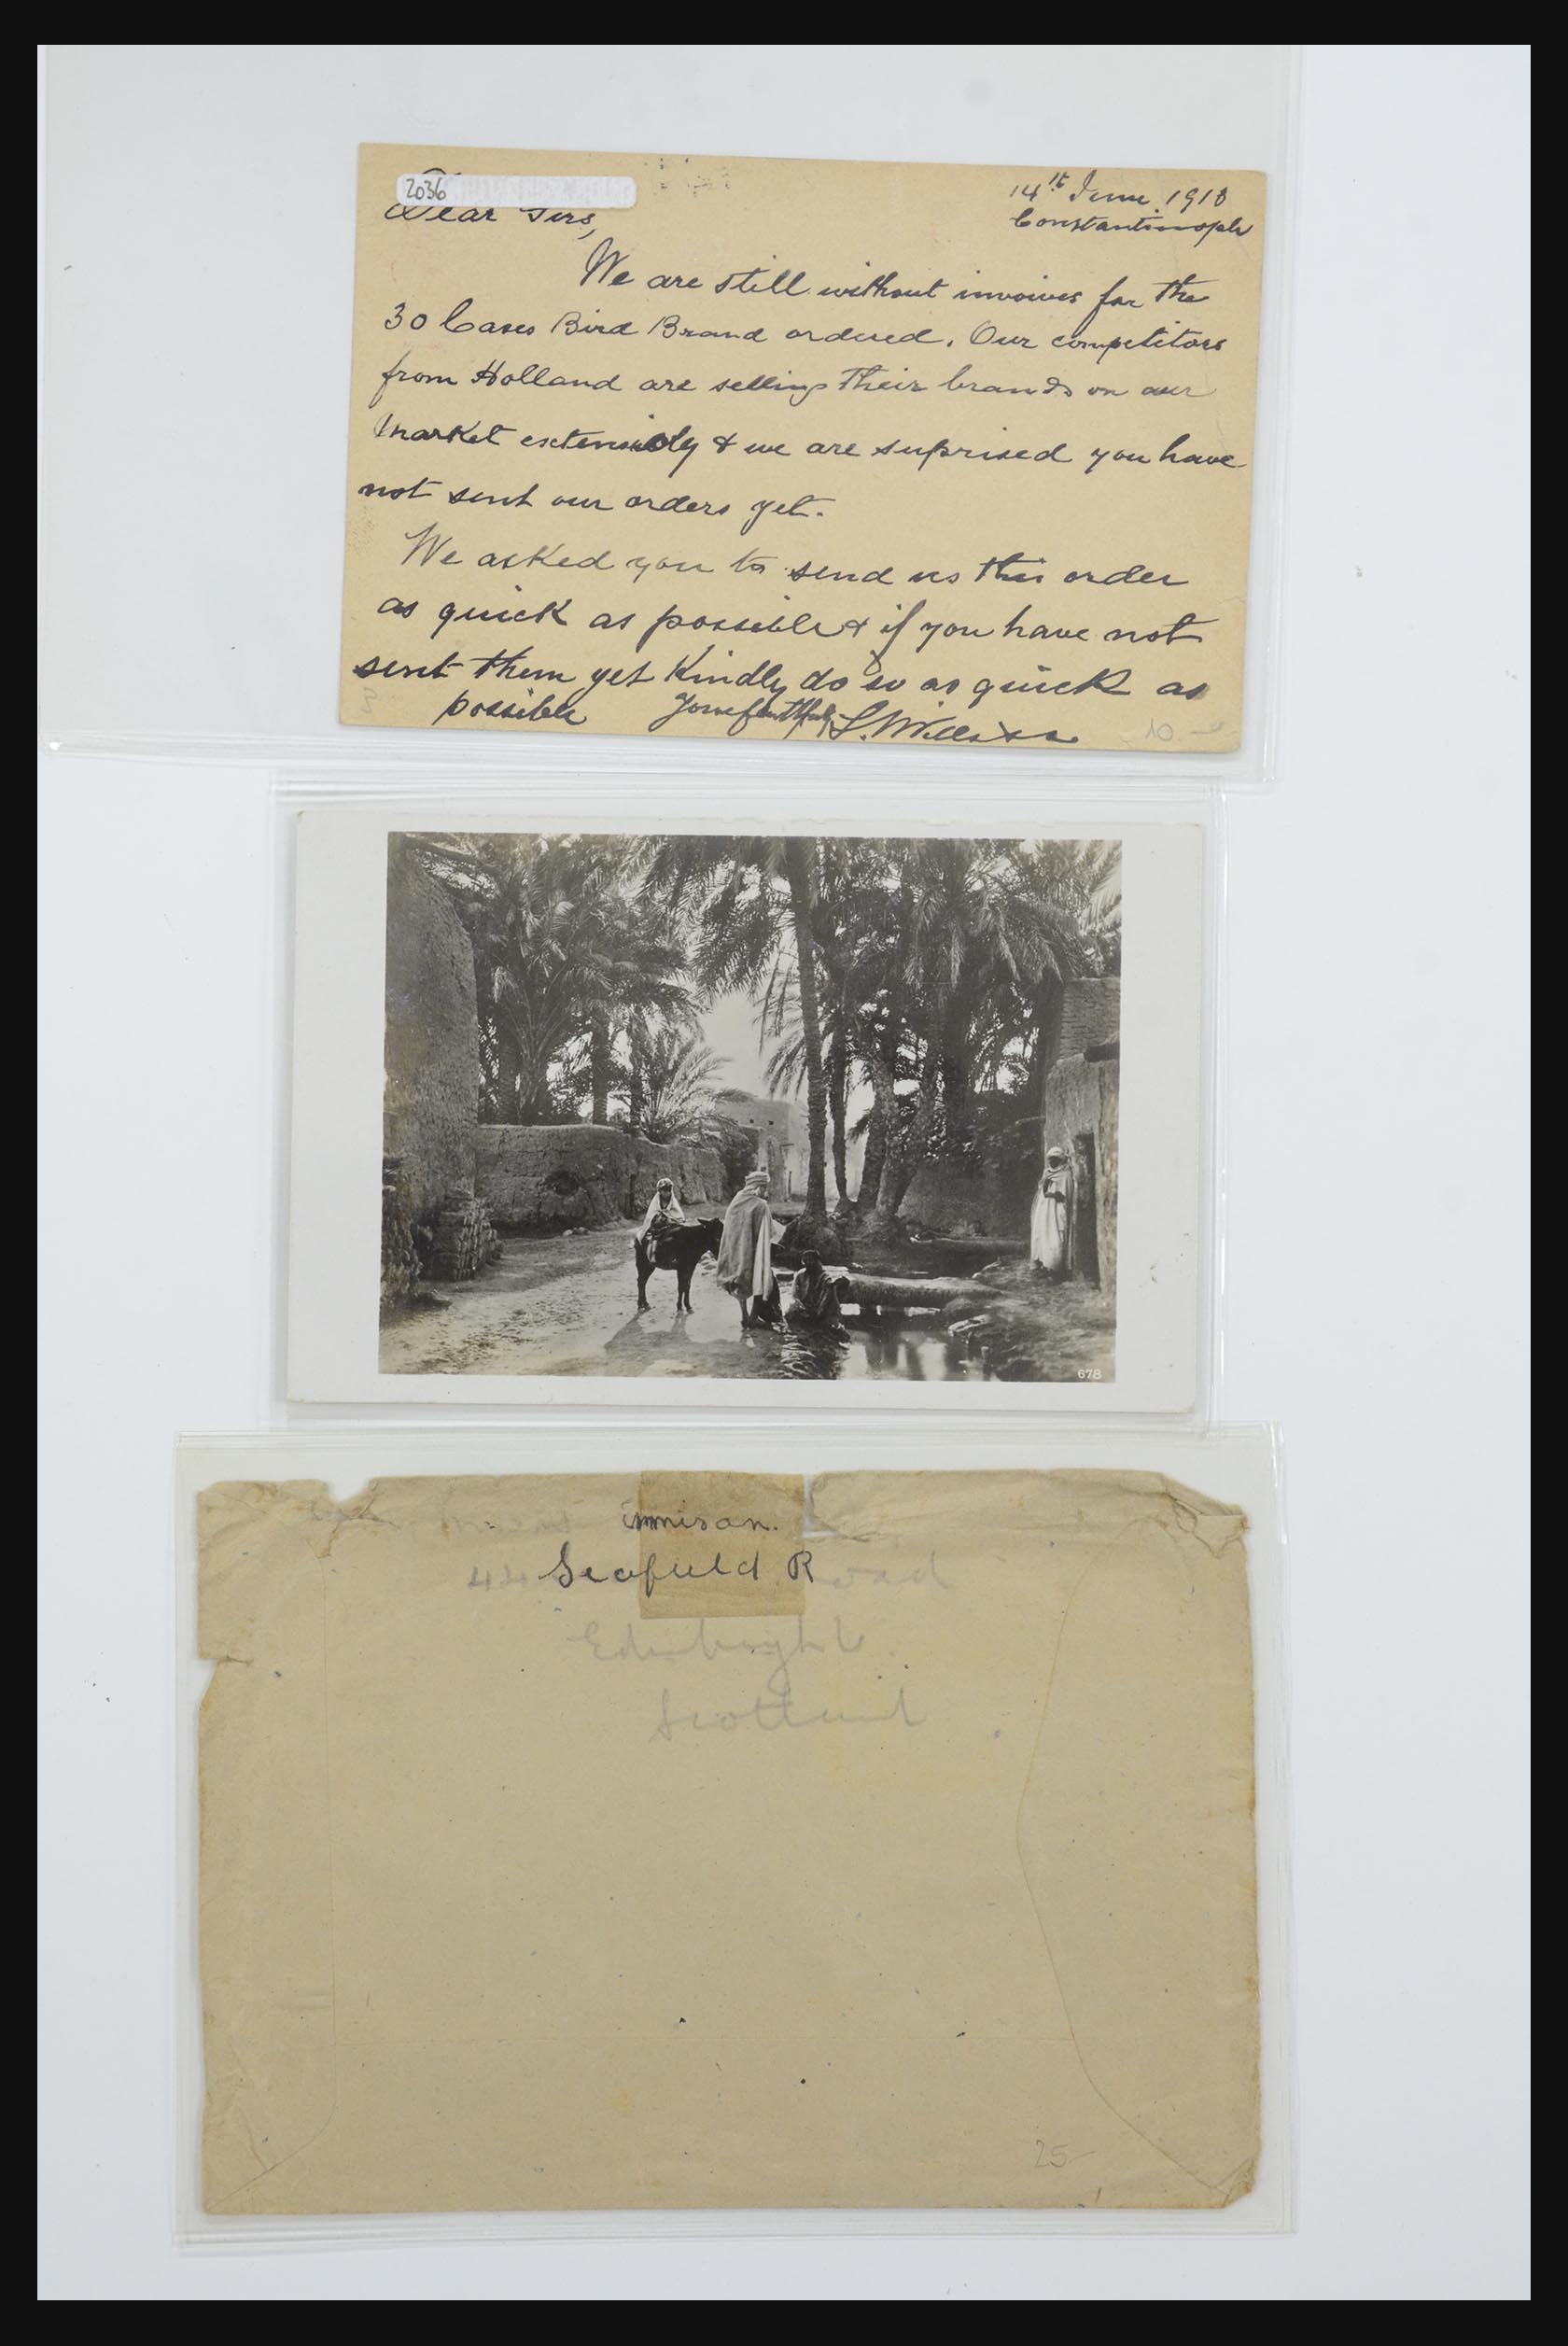 2036
14th June 1910
Constantinople
Dear Sirs,
We are still without invoices for the
30 Cases Bird Brand ordered. Our competitors
from Holland are selling their brands on our
market extensively & we are suprised you have
not sent our orders yet.
We asked you to send us this order
as quick as possible & if you have not
sent them yet Kindly do so as quick as
possible Yours faithfully
10.-
678
44 Seafield Road
Scotland
25-